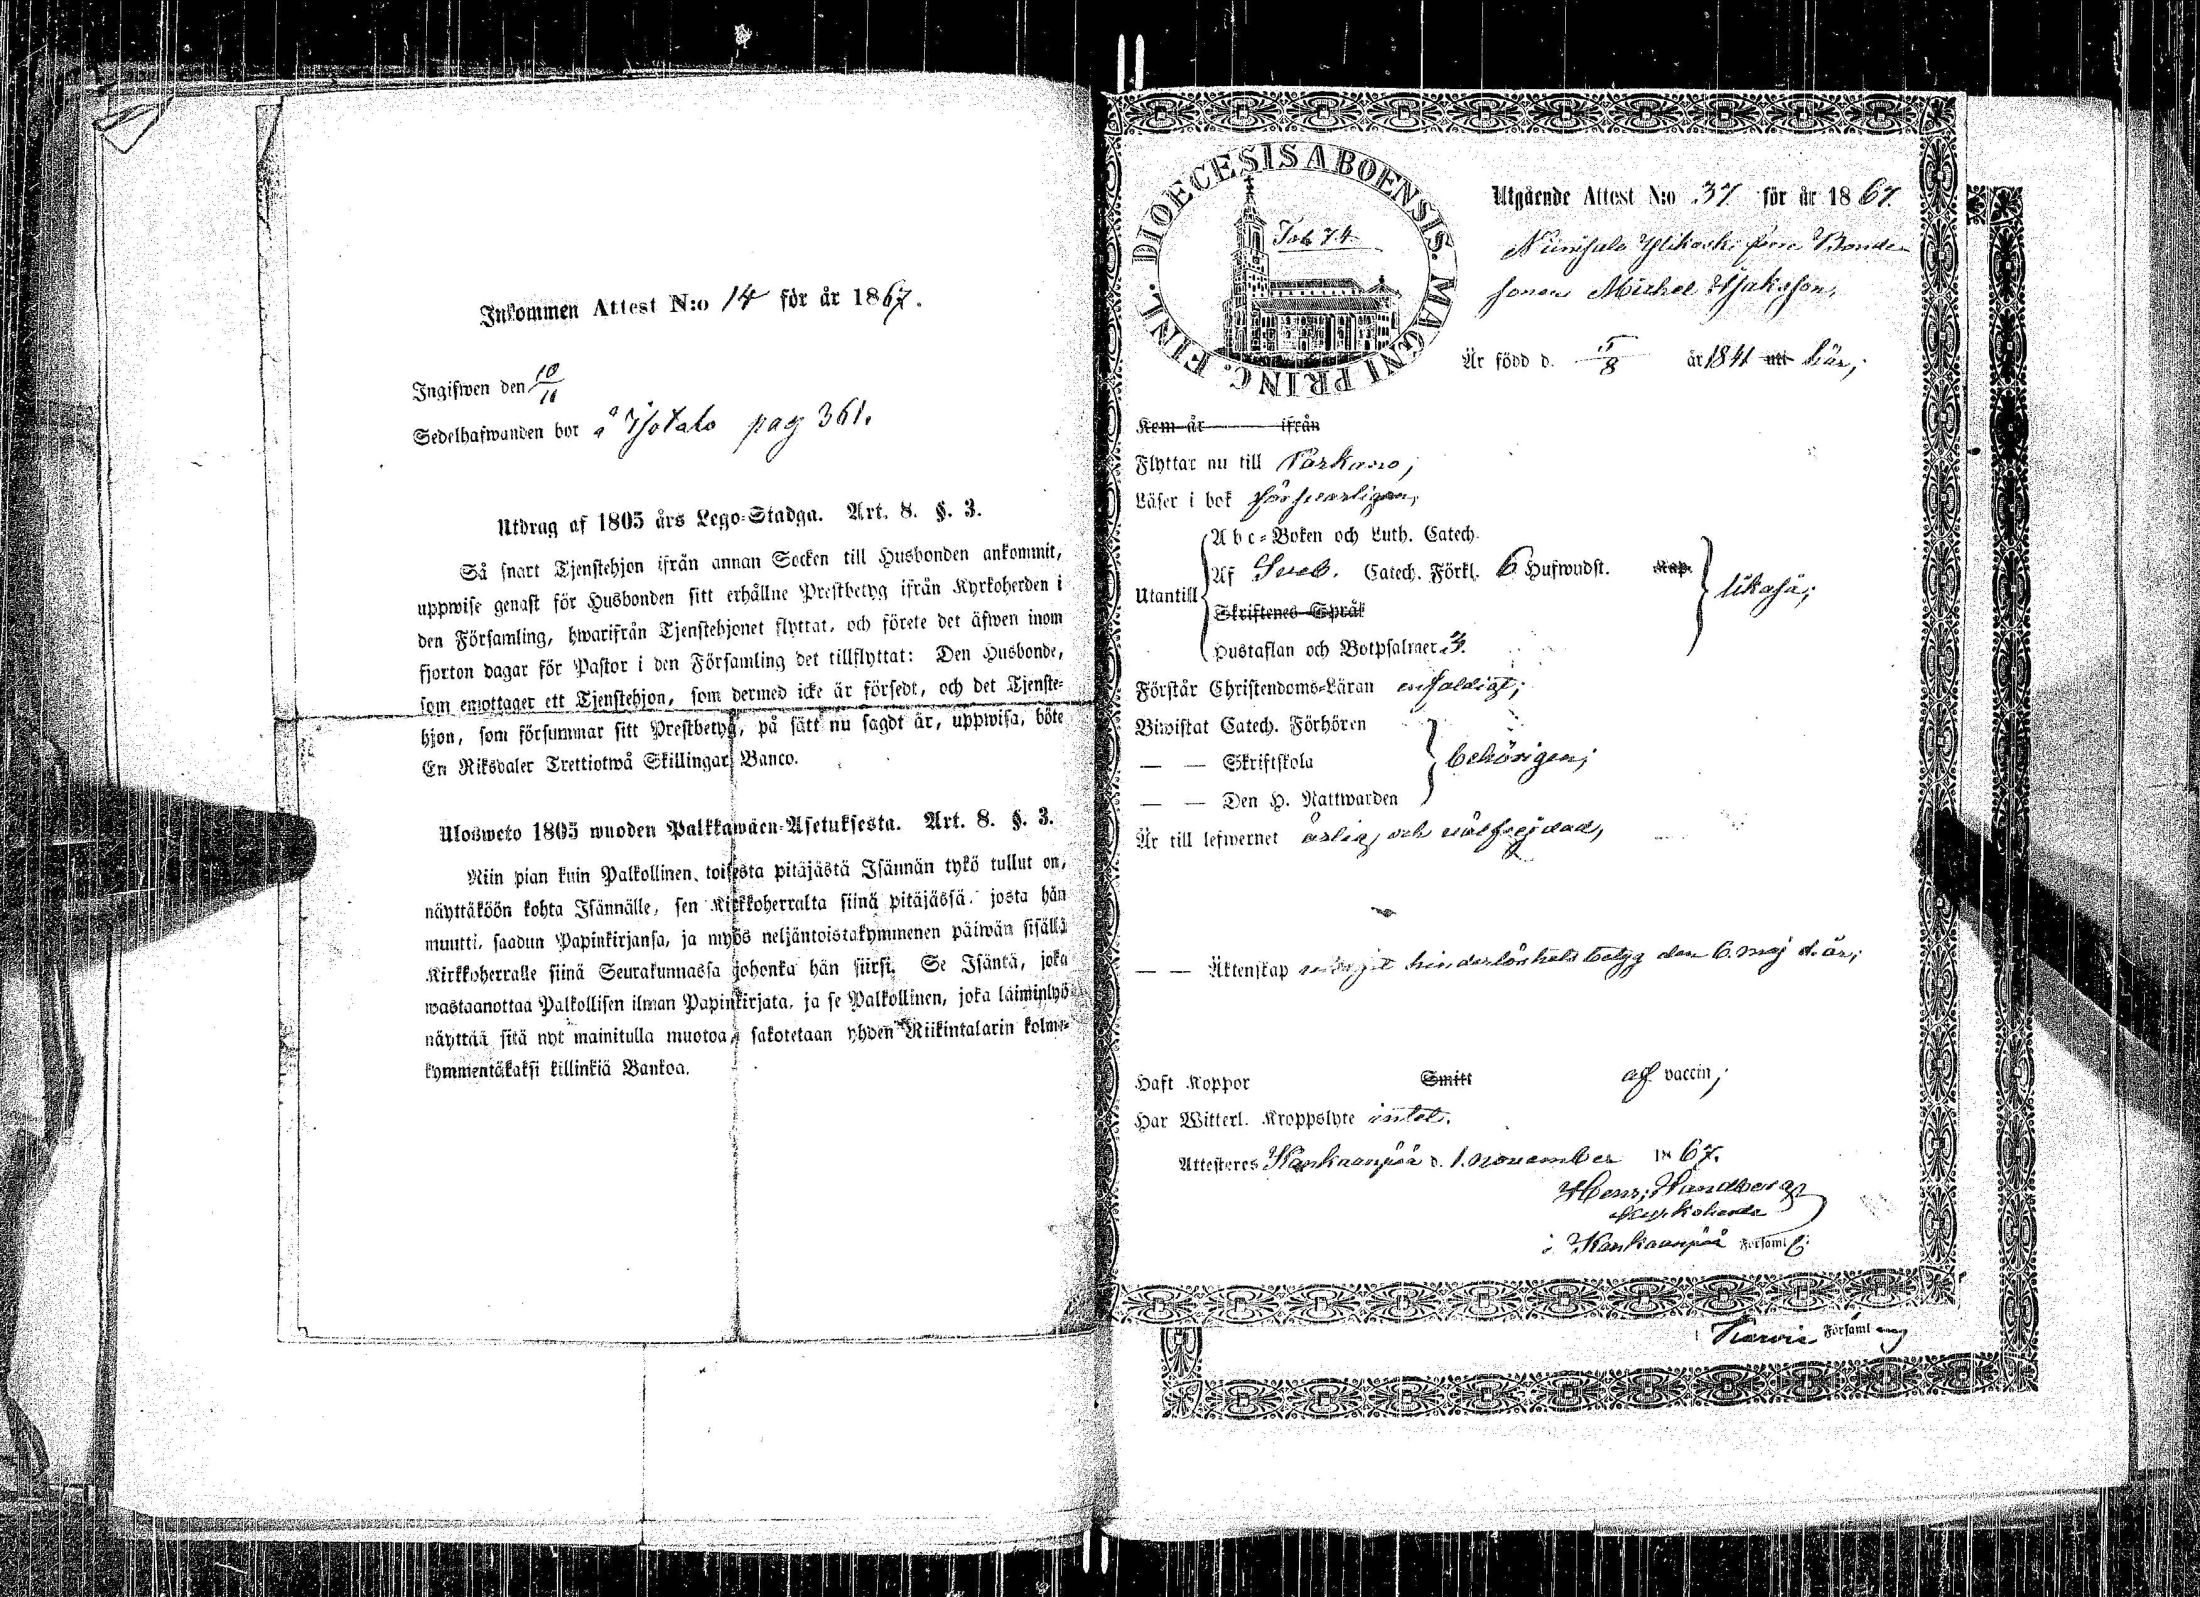 Inkommen Attest N:o 14 för år 1867.
Ingifwen den 10/11
Sedelhafwanden bor å Isotalo pag 361.
Utdrag af 1805 års Lego-Stadga. Art. 8. §. 3.
Så snart Tjenstehjon ifrån annan Socken till Husbonden ankommit,
uppwise genast för Husbonden sitt erhållne Prestbetyg ifrån Kyrkoherden i
den Församling, hwarifrån Tjenstehjonet flyttat, och förete det äfwen inom
fjorton dagar för Pastor i den Församling det tillflyttat: Den Husbonde,
som emottager ett Tjenstehjon, som dermed icke är försedt, och det Tjenste-
hjon, som försummar sitt Prestbetyg, på sätt nu sagdt är, uppwisa, böte
En Riksdaler Trettiotwå Skillingar Banco.
Ulosweto 1805 wuoden Palkkawäen-Asetuksesta. Art. 8. §. 3.
Niin pian kuin Palkollinen, toisesta pitäjästä Isännän tykö tullut on,
näyttäköön kohta Isännälle, sen Kirkkoherralta siinä pitäjässä, josta hän
muutti, saadun Papinkirjansa, ja myös neljäntoistakymmenen päiwän sisällä
Kirkkoherralle siinä Seurakunnassa johonka hän siirsi. Se Isäntä, joka
wastaanottaa Palkollisen ilman Papinkirjata, ja se Palkollinen, joka laiminlyö
näyttää sitä nyt mainitulla muotoa, sakotetaan yhden Riikintalarin kolme-
kymmentäkaksi killinkiä Bankoa.
DIOECESIS ABOENSIS. MAGNI PRINC. FINL.
Tab 74
Utgående Attest N:o 37 för år 1867
Niinisalo Ylikoski Bonde-
sonen Michel Isaksson,
Är född d. 5/8 år 1841 uti här;
Kom år ifrån
Flyttar nu till Parkano;
Läser i bok försvarligen,
Abc-Boken och Luth. Catech.
Utantill Af Sveb. Catech. Förkl. 6 Hufwudst. Kap. likaså;
Skriftenes Språk
Hustaflan och Botpsalmer 3.
Förstår Christendoms-Läran enfaldigt;
Biwistat Catech. Förhören
— — Skriftskola behörigen;
— — Den H. Nattwarden
Är till lefwernet ärlig och välfrejdad,
— — Äktenskap hinderlöshets betyg den 6. maj d. år;
Haft Koppor Smitt af vaccin;
Har Witterl. Kroppslyte intet.
Attesteres Kankaanpää d. 1. november 1867.
Kyrkoherde
i Kankaanpää Församl.
i Karvia Församling